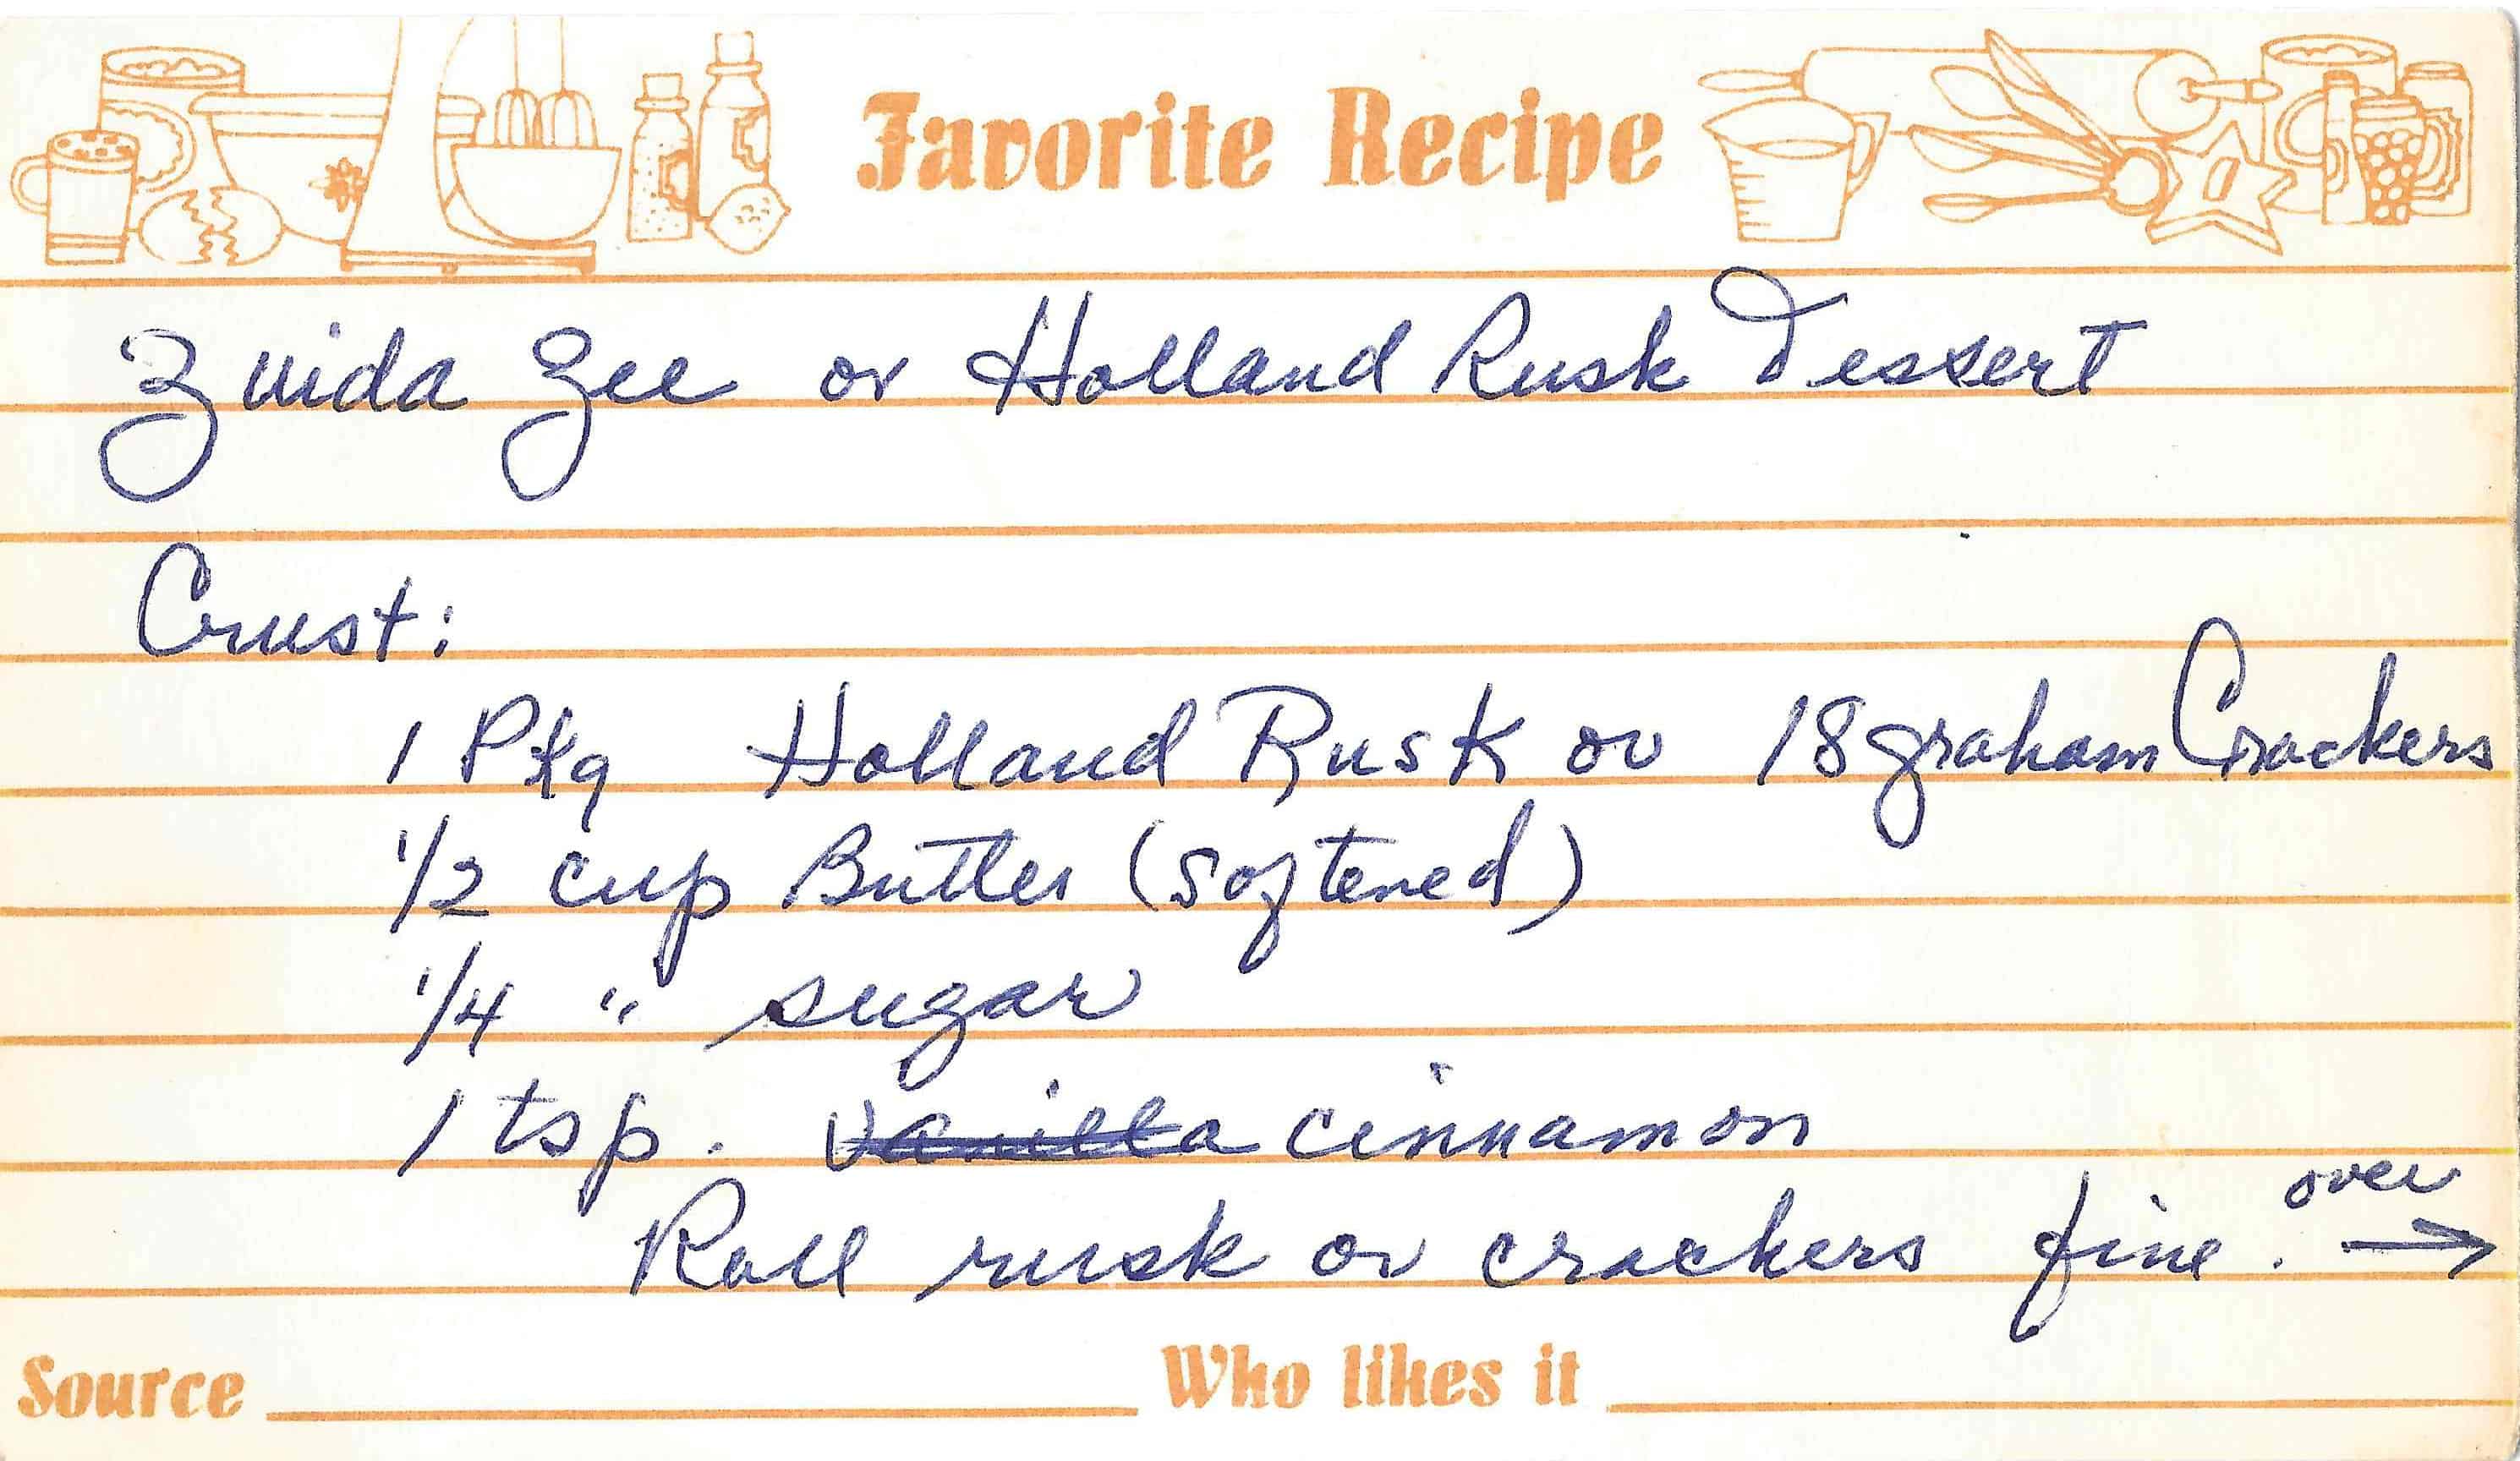 Favorite Recipe
Zuida Zee or Holland Rusk Dessert
Crust:
1 Pkg Holland Rusk or 18 graham Crackers
1/2 cup Butter (softened)
1/4 " sugar
1 tsp. vanilla cinnamon
over
Roll rusk or crackers fine. →
Source Who likes it